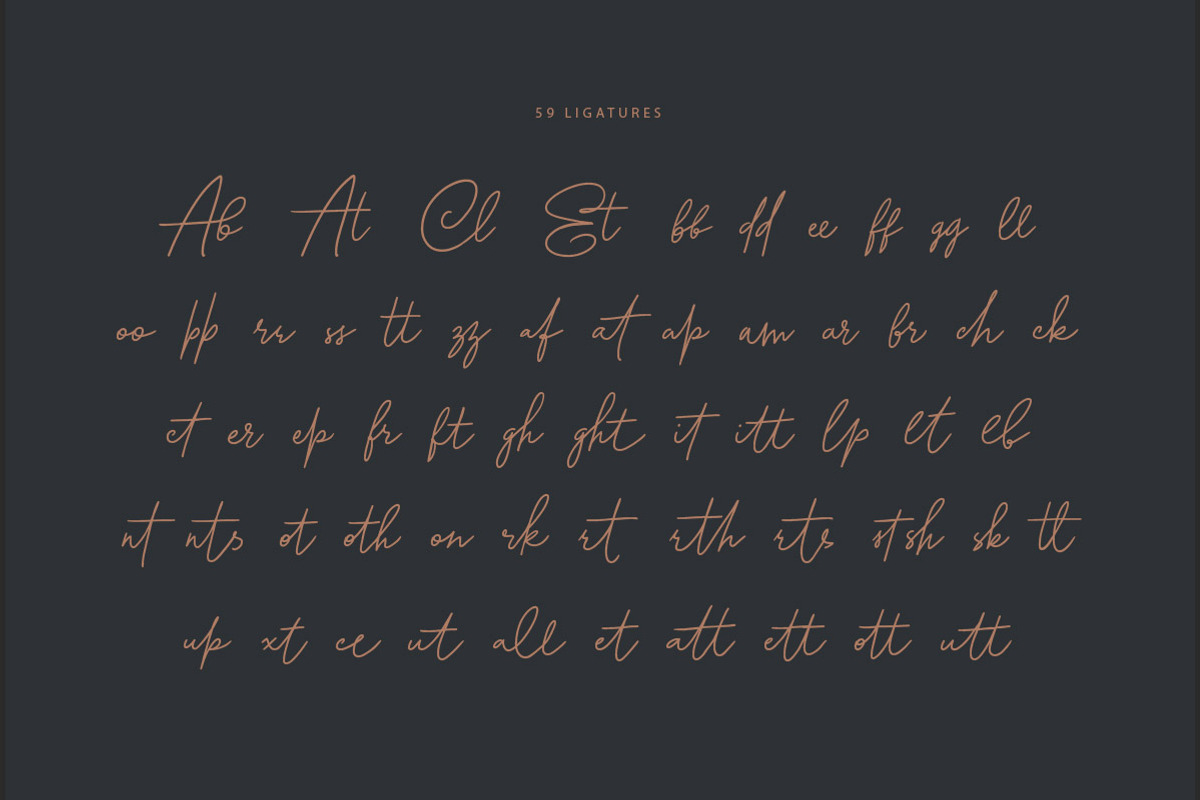 59 LIGATURES
Ab At Cl Et bb dd ee ff gg ll
oo pp rr ss tt zz af at ap am ar br ch ck
ct er ep fr ft gh ght it itt lp lt lb
nt nts ot oth on rk rt rth rts st sh sk tt
up xt ce ut all et att ett ott utt